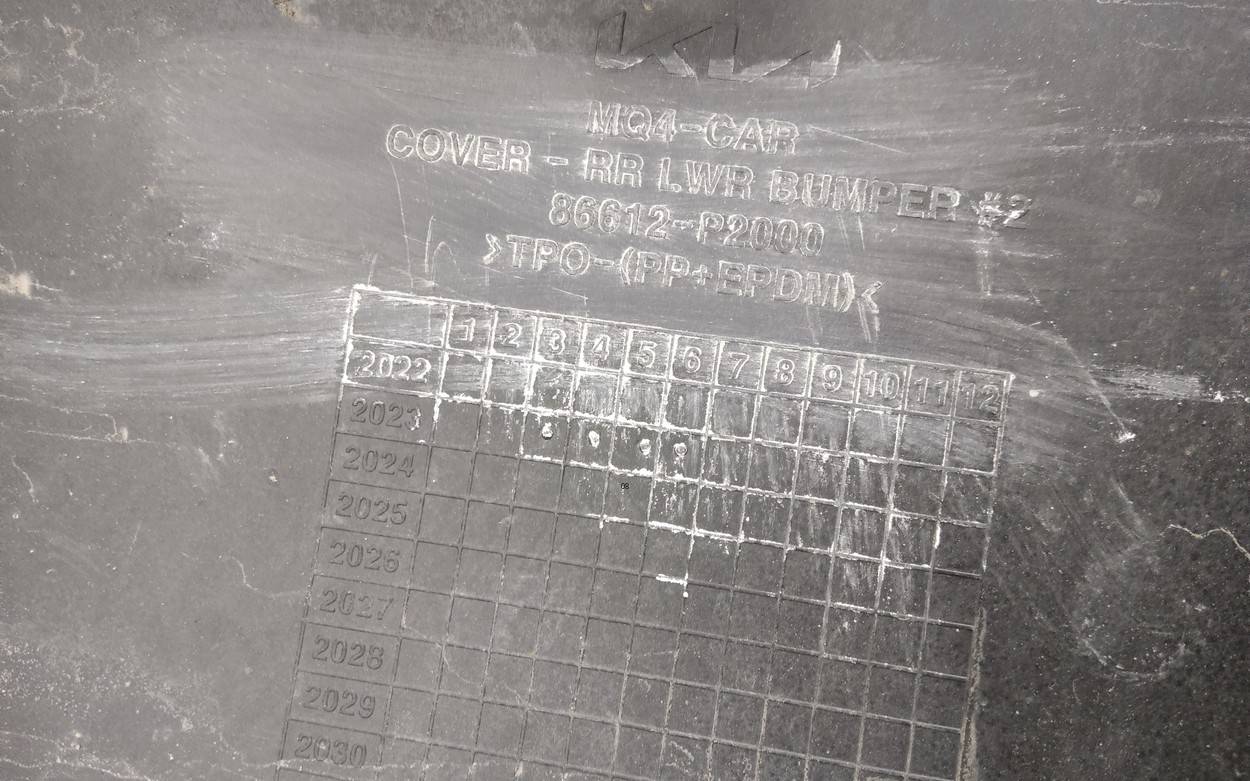 KIA
MQ4-CAR
COVER - RR LWR BUMPER #2
86612-P2000
>TPO-(PP+EPDM)<
1 2 3 4 5 6 7 8 9 10 11 12
2022
2023
2024
2025
2026
2027
2028
2029
2030